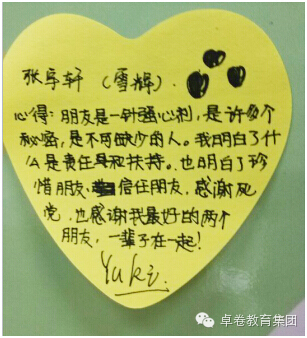 张宇轩（雪辉）.
心得：朋友是一针强心剂，是许多个
秘密，是不可缺少的人。我明白了什
么是责任是和扶持。也明白了珍
惜朋友 信任朋友，感谢死
党，也感谢我最好的两个
朋友，一辈子在一起！
Yuki
卓卷教育集团